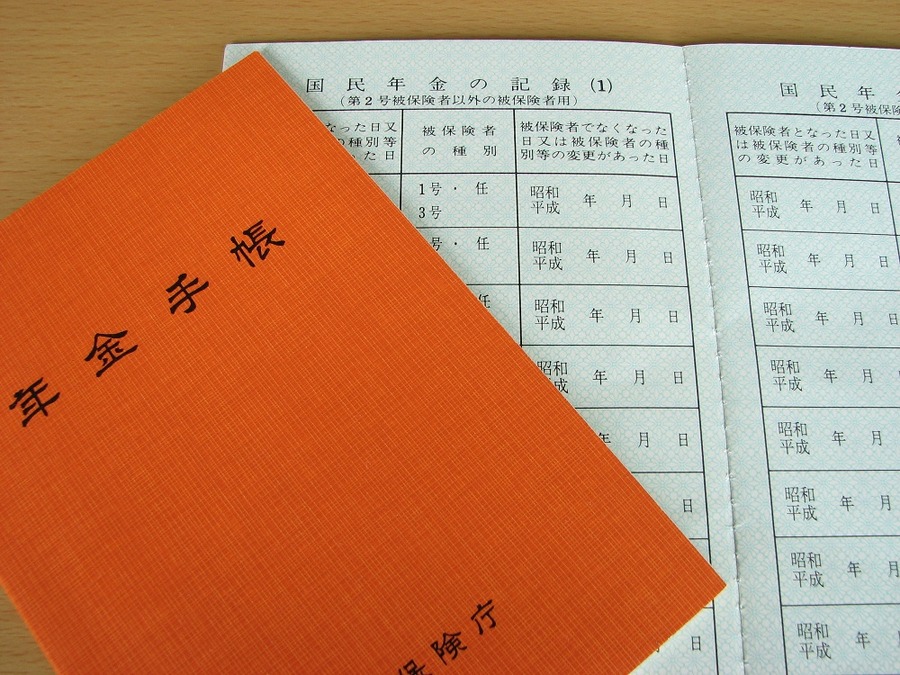 年金手帳
保険庁
国民年金の記録(1)
(第2号被保険者以外の被保険者用)
なった日又
の種別等
った日
被保険者
の種別
被保険者でなくなった
日又は被保険者の種
別等の変更があった日
1号・任
3号
昭和
平成 年 月 日
号・任
昭和
平成 年 月 日
任
昭和
平成 年 月 日
昭和
成 年 月 日
年 月 日
日
日
国民年
(第2号被保険
被保険者となった日又
は被保険者の種別等
の変更があった日
昭和
平成 年 月 日
昭和
平成 年 月 日
昭和
平成 年 月 日
昭和
平成 年 月
昭和
平成 年 月
昭和
平成 年 月
昭和
平成 年 月
昭和
平成 年 月